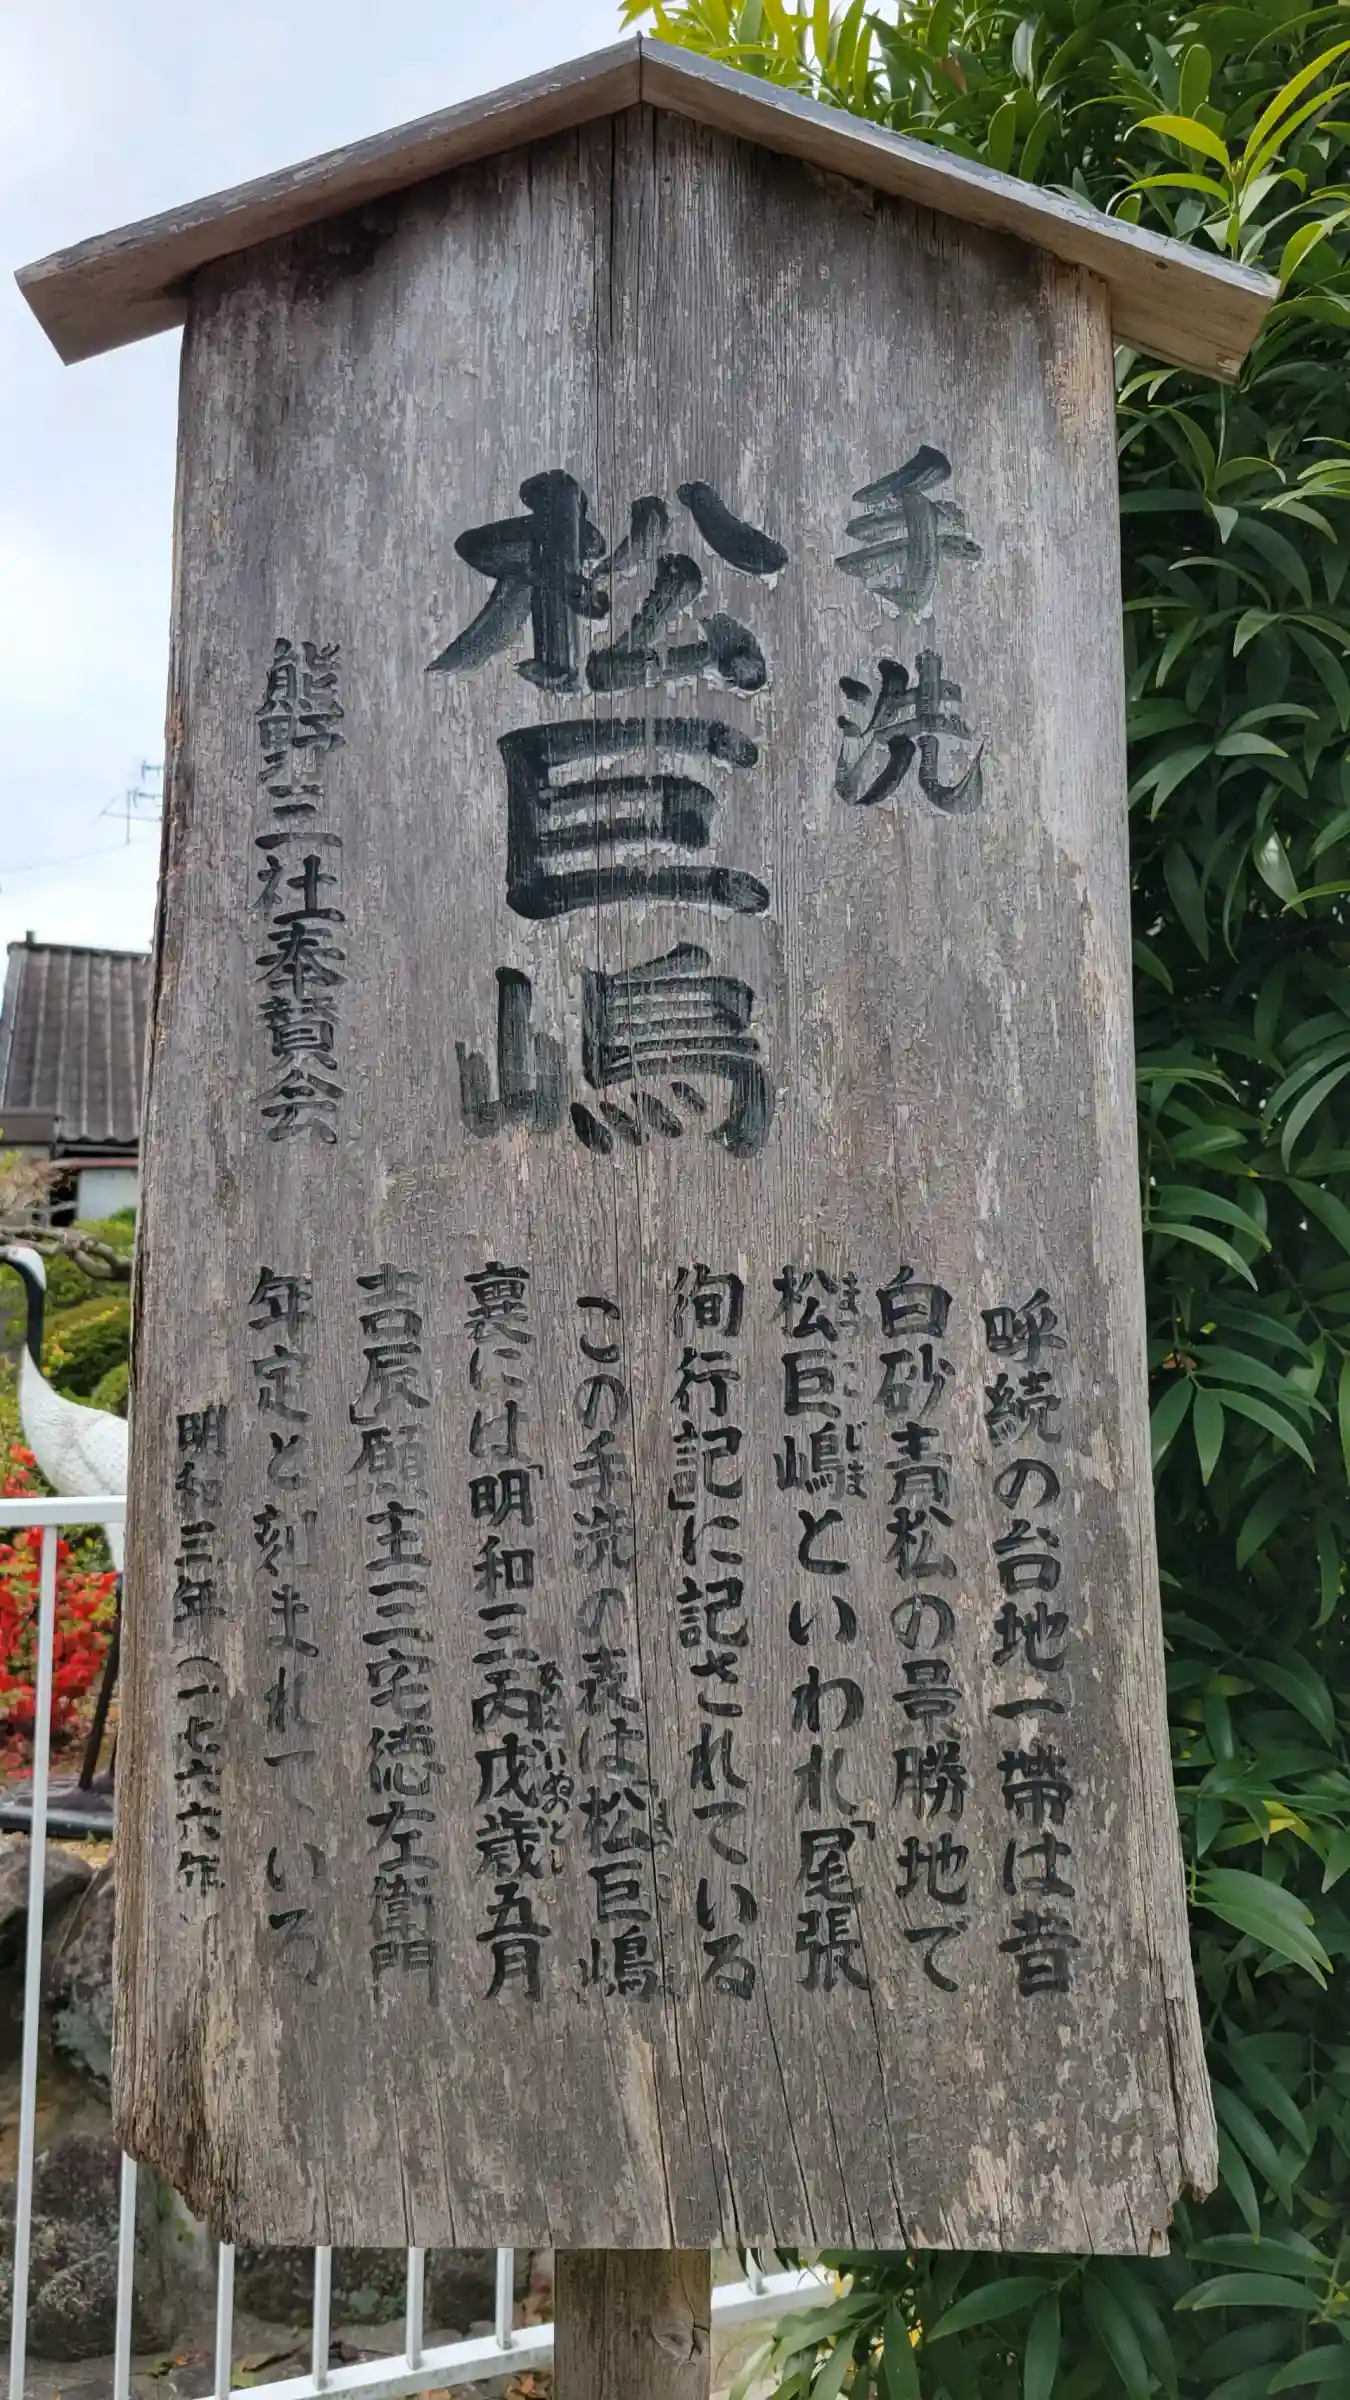 手洗
松巨嶋
熊野三社奉賛会
呼続の台地一帯は昔
白砂青松の景勝地で
松巨嶋といわれ「尾張
まつこじま
徇行記」に記されている
この手洗の表は「松巨嶋
まつこじま
裏には「明和三丙戌歳五月
いぬのとし
吉辰」願主三宅徳左衛門
年定と刻まれている
明和三年(一七六六年)